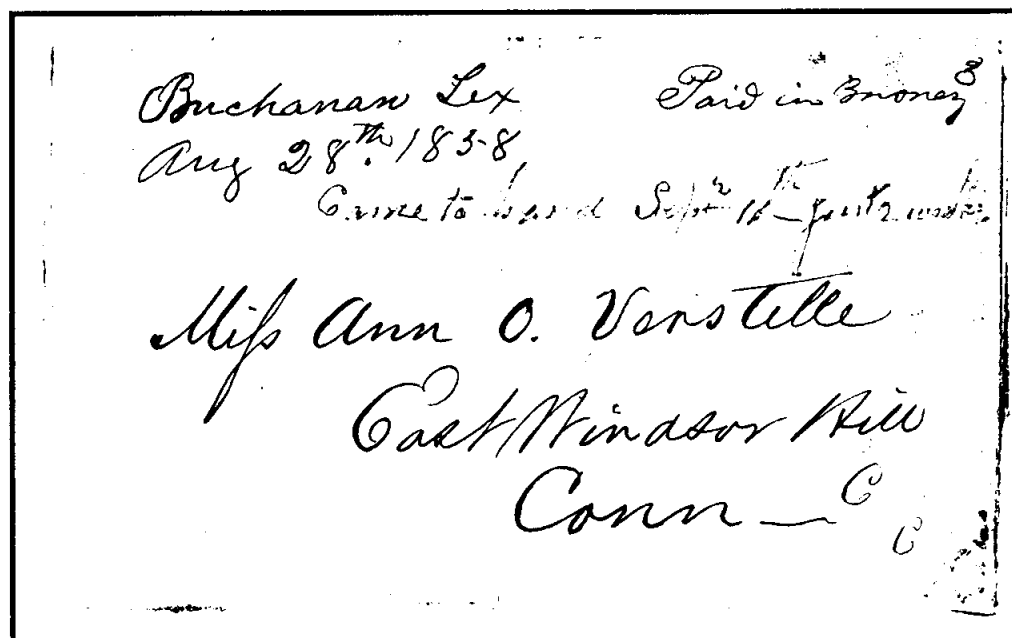 Buchanan Tex Paid in money 3
Aug 28th. 1858,
Came to hand Sept 11th just 2 weeks
Miſs Ann O. Verstille
East Windsor Hill
Conn —